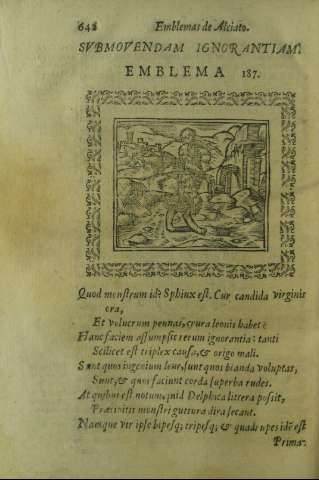 642 Emblemas de Alciato.
SVBMOVENDAM IGNORANTIAM.
EMBLEMA 187.
Quod monstrum id? Sphinx est. Cur candida virginis
ora,
Et volucrum pennas, crura leonis habet?
Hanc faciem assumpsit rerum ignorantia: tanti
Scilicet est triplex causa, & origo mali.
Sunt quos ingenium leue, sunt quos blanda voluptas,
Sunt, & quos faciunt corda superba rudes.
At quibus est notum, quid Delphica littera possit,
Præcipitis monstri guttura dira secant.
Namque vir ipse bipesq; tripesq; & quadrupes idē est
Prima